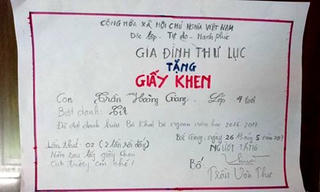 CỘNG HÒA XÃ HỘI CHỦ NGHĨA VIỆT NAM
Độc lập - Tự do - Hạnh phúc
GIA ĐÌNH THƯ LỤC
TẶNG
GIẤY KHEN
Con Trần Hoàng Giang - Lớp 4 tuổi
Biệt danh: Tít
Đã đạt danh hiệu Bé khoẻ bé ngoan năm học 2016-2017
Bắc Giang, ngày 26 tháng 5 năm 2017
Lần thứ: 02 (2 lần nội dung)
NGƯỜI THƯỞNG
Năm sau lấy giấy khen
của trường con nhé!
Bố
Trần Văn Thư